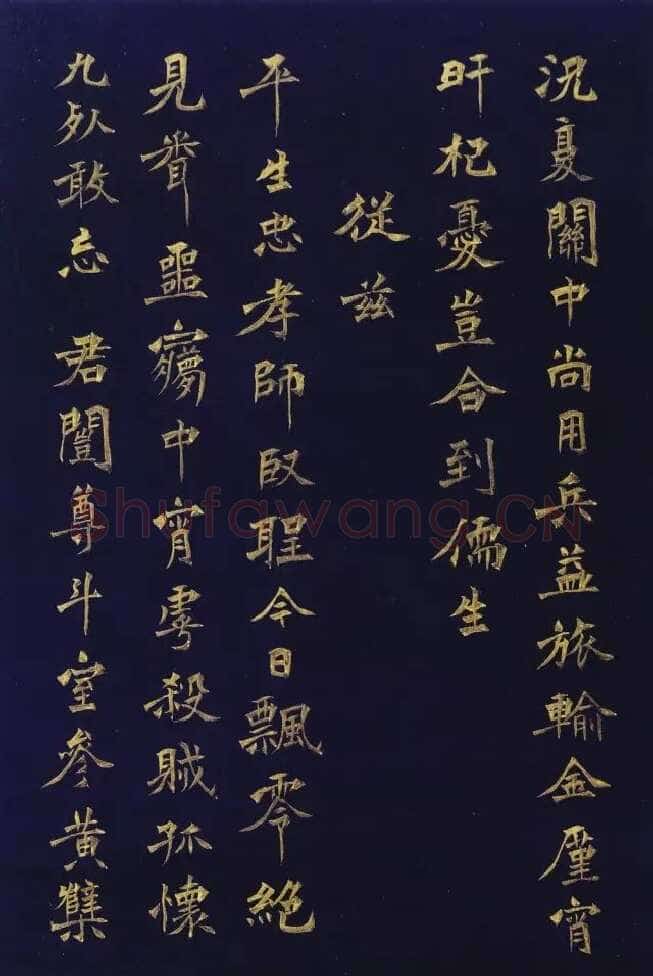 況复關中尚用兵益旅輸金廑宵
旰杞憂豈合到儒生
從兹
平生忠孝師臤聖今日飄零絕
見聞噩㝱中宵虖殺賊孤懷
九死敢忘 君闓尊斗室參黃檗
Shufawang.CN